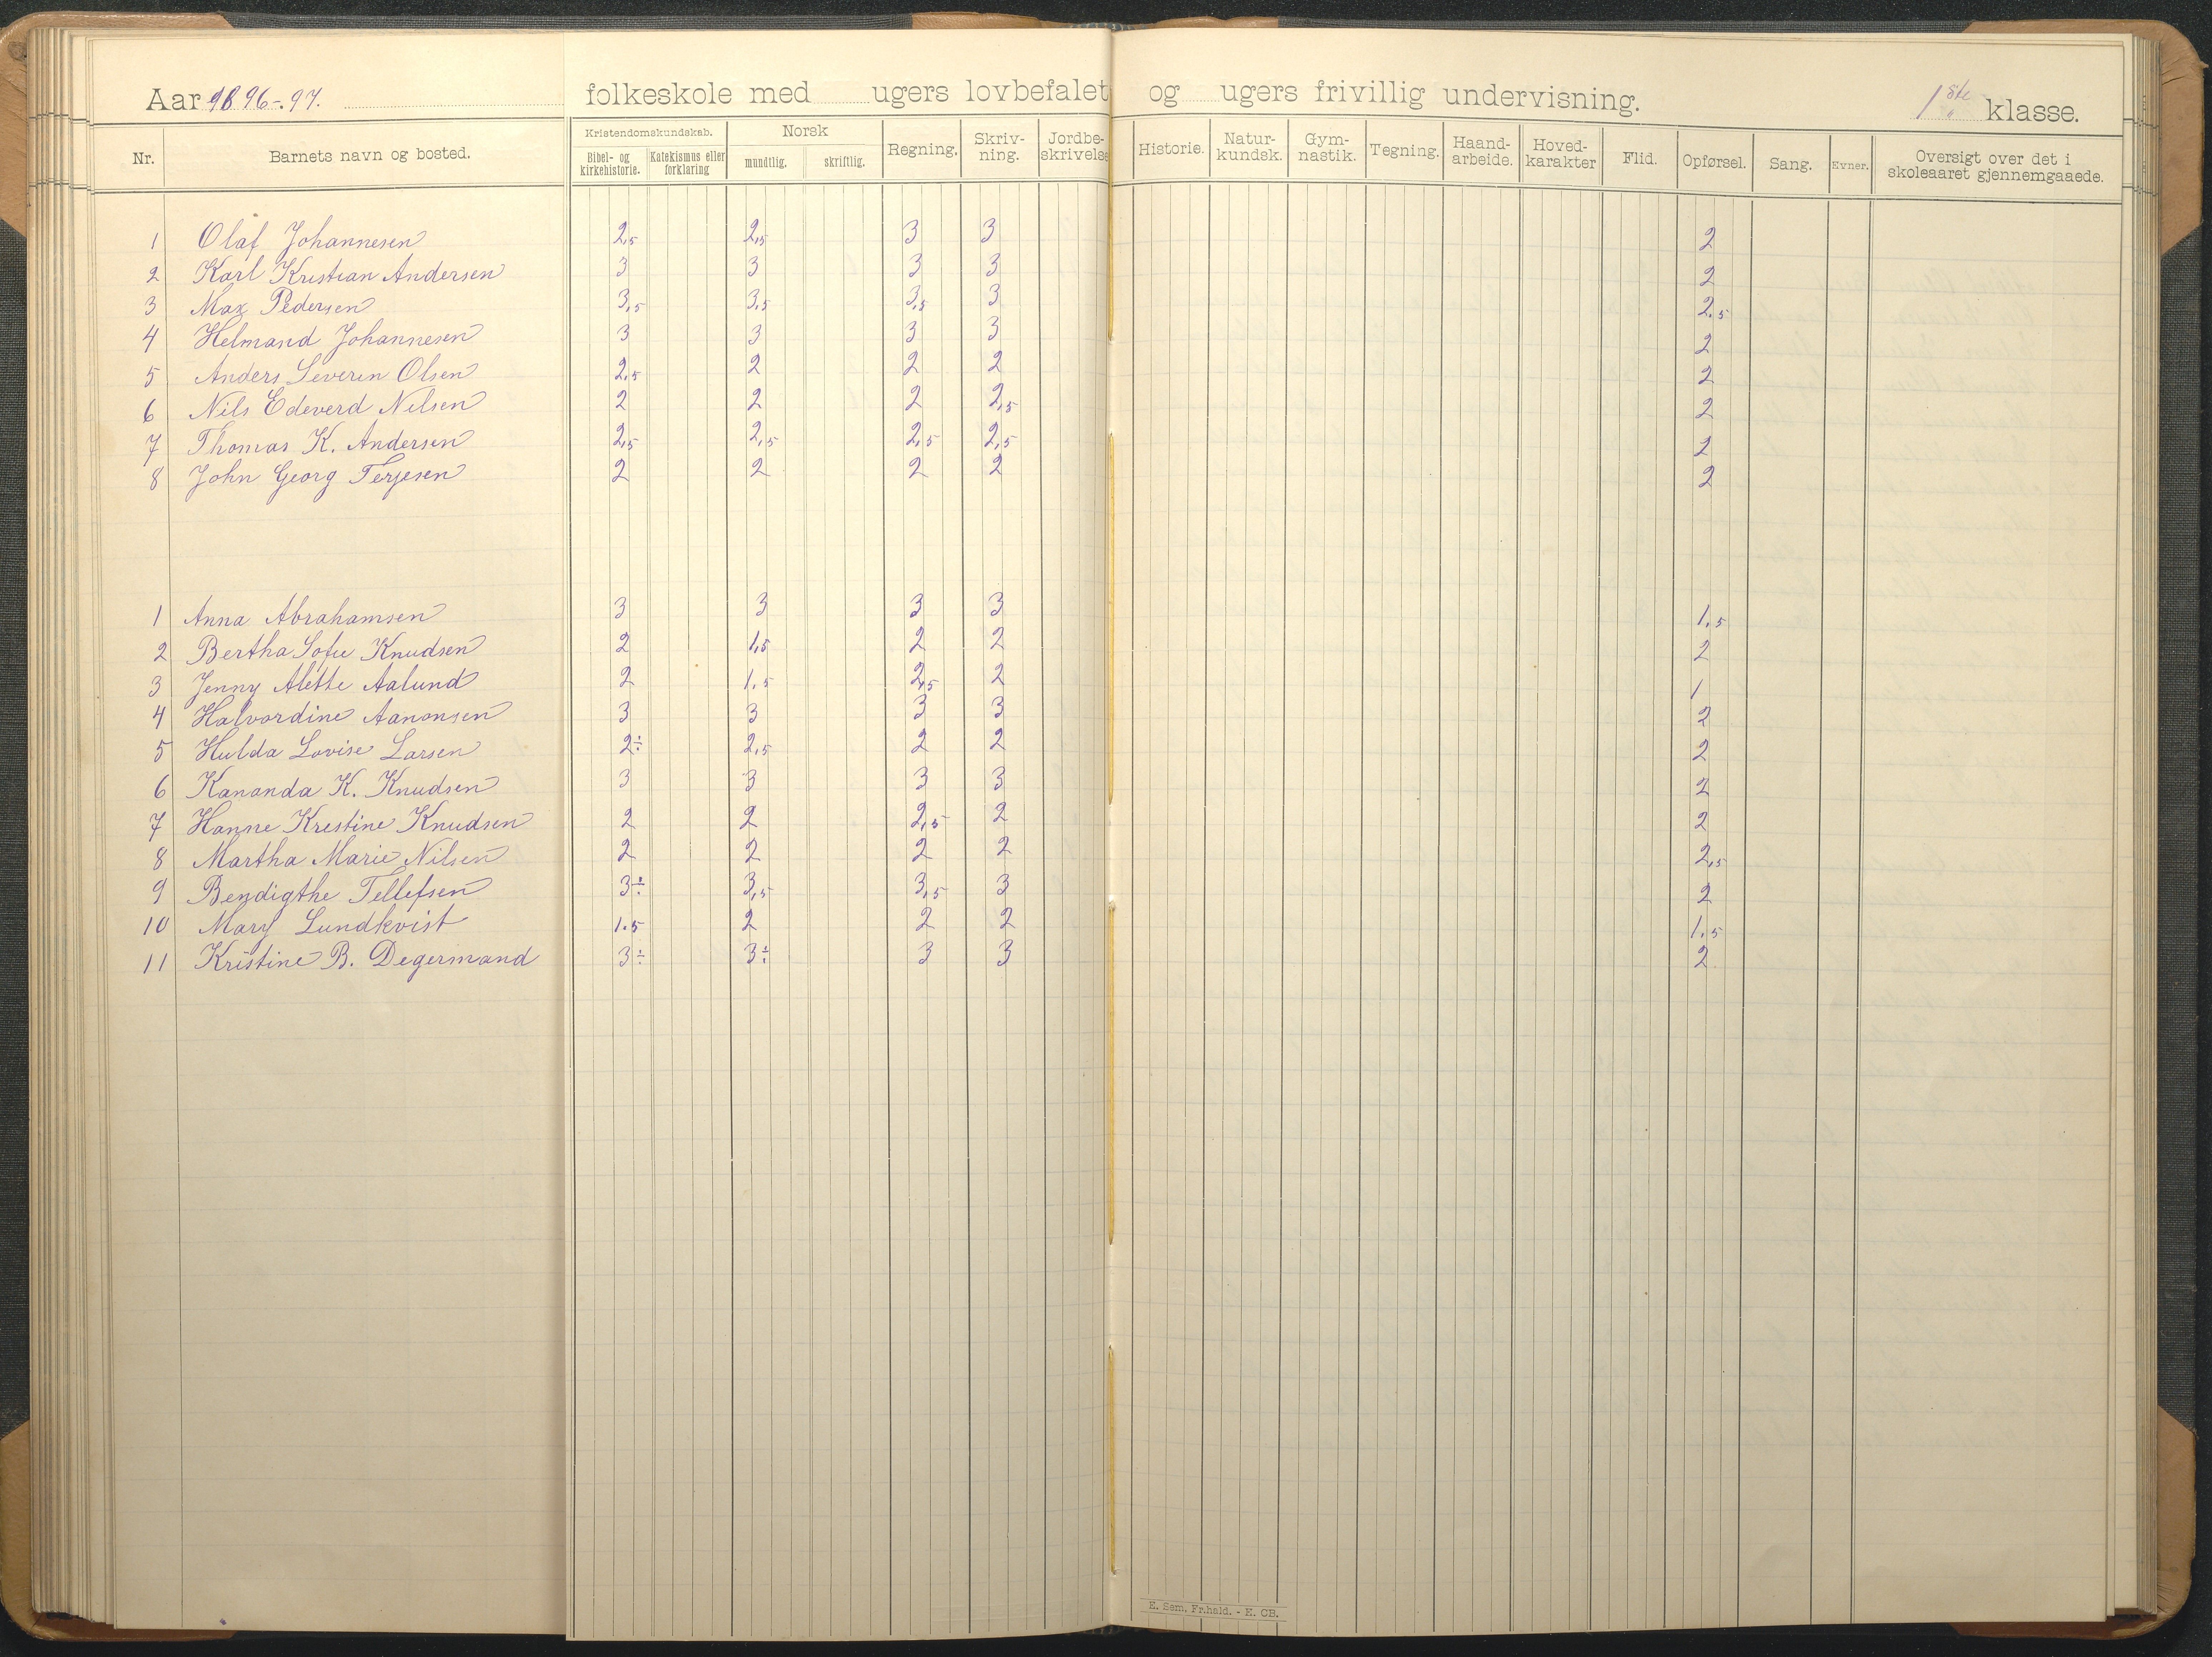 Aar 1896-97. folkeskole med ugers lovbefalet og ugers frivillig undervisning. 1ste klasse.
Nr. Barnets navn og bosted. Kristendomskundskab. Bibel- og kirkehistorie. Katekismus eller forklaring Norsk mundtlig. skriftlig. Regning. Skriv-ning. Jordbe-skrivelse Historie. Natur-kundsk. Gym-nastik. Tegning. Haand-arbeide. Hoved-karakter Flid. Opførsel. Sang. Evner. Oversigt over det i skoleaaret gjennemgaaede.
1 Olaf Johannesen 2,5 2,5 3 3 2
2 Karl Kristian Andersen 3 3 3 3 2
3 Max Pedersen 3,5 3,5 3,5 3 2.5
4 Helmand Johannesen 3 3 3 3 2
5 Anders Severin Olsen 2,5 2 2 2 2
6 Nils Edeverd Nilsen 2 2 2 2,5 2
7 Thomas K. Andersen 2,5 2,5 2,5 2,5 2
8 John Georg Terjesen 2 2 2 2 2
1 Anna Abrahamsen 3 3 3 3 1.5
2 Bertha Sofie Knudsen 2 1,5 2 2 2
3 Jenny Alette Aalund 2 1.5 2,5 2 1
4 Halvordine Aanonsen 3 3 3 3 2
5 Hulda Lovise Larsen 2÷ 2,5 2 2 2
6 Kananda K. Knudsen 3 3 3 3 2
7 Hanne Krestine Knudsen 2 2 2,5 2 2
8 Martha Marie Nilsen 2 2 2 2 2,5
9 Bendigthe Tellefsen 3÷ 3,5 3,5 3 2
10 Mary Lundkvist 1.5 2 2 2 1.5
11 Kristine B. Degermand 3÷ 3÷ 3 3 2
E. Sem, Fr.hald. - E. CB.